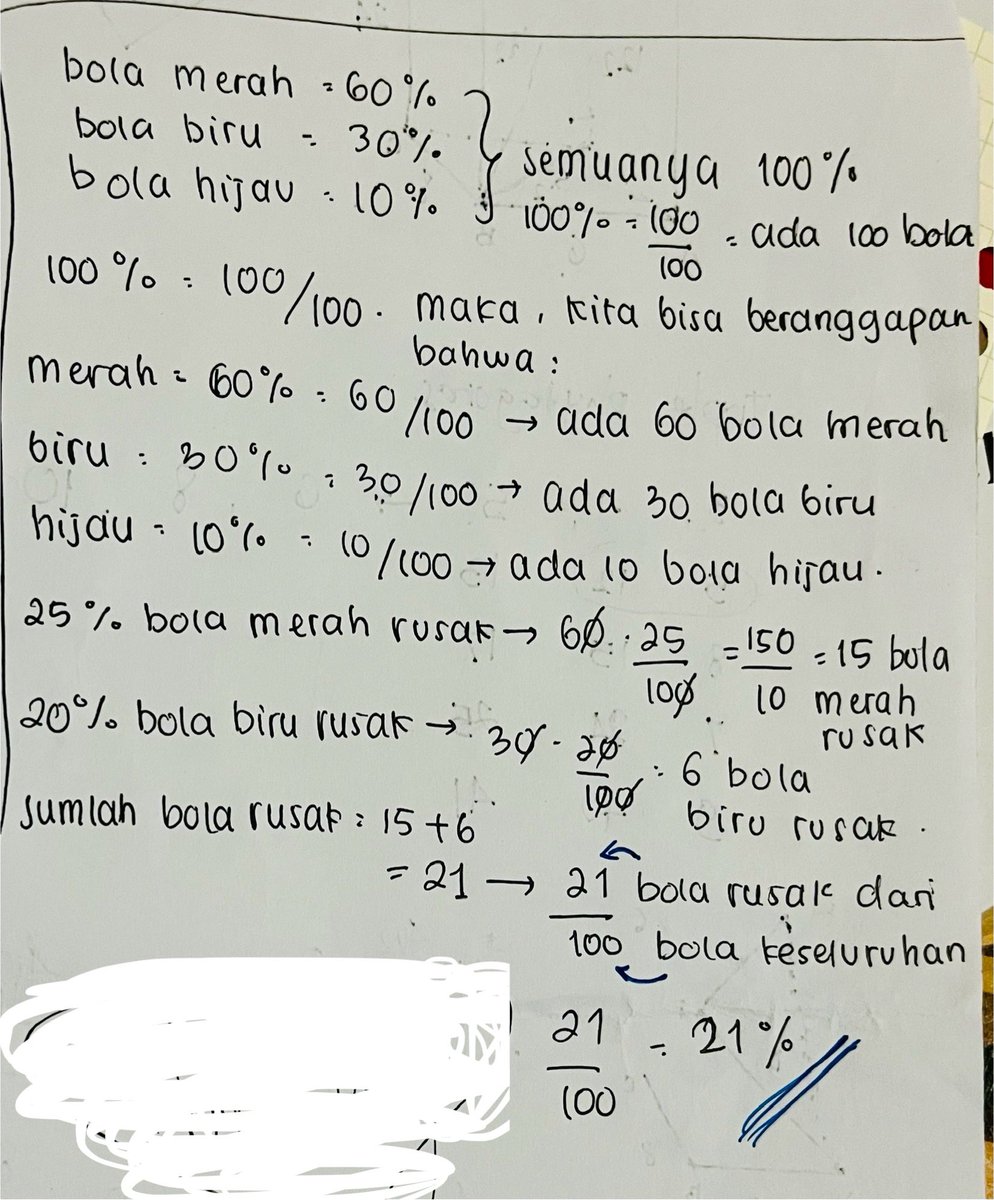 bola merah = 60%
bola biru = 30%
bola hijau = 10%
semuanya 100%
100% = 100/100 = ada 100 bola
100% = 100/100. maka, kita bisa beranggapan
bahwa:
merah = 60% = 60/100 → ada 60 bola merah
biru = 30% = 30/100 → ada 30 bola biru
hijau = 10% = 10/100 → ada 10 bola hijau.
25% bola merah rusak → 60 . 25/100 = 150/10 = 15 bola
merah
rusak
20% bola biru rusak → 30 . 20/100 = 6 bola
biru rusak.
Jumlah bola rusak = 15 + 6
= 21 → 21 bola rusak dari
100 bola keseluruhan
21/100 = 21%